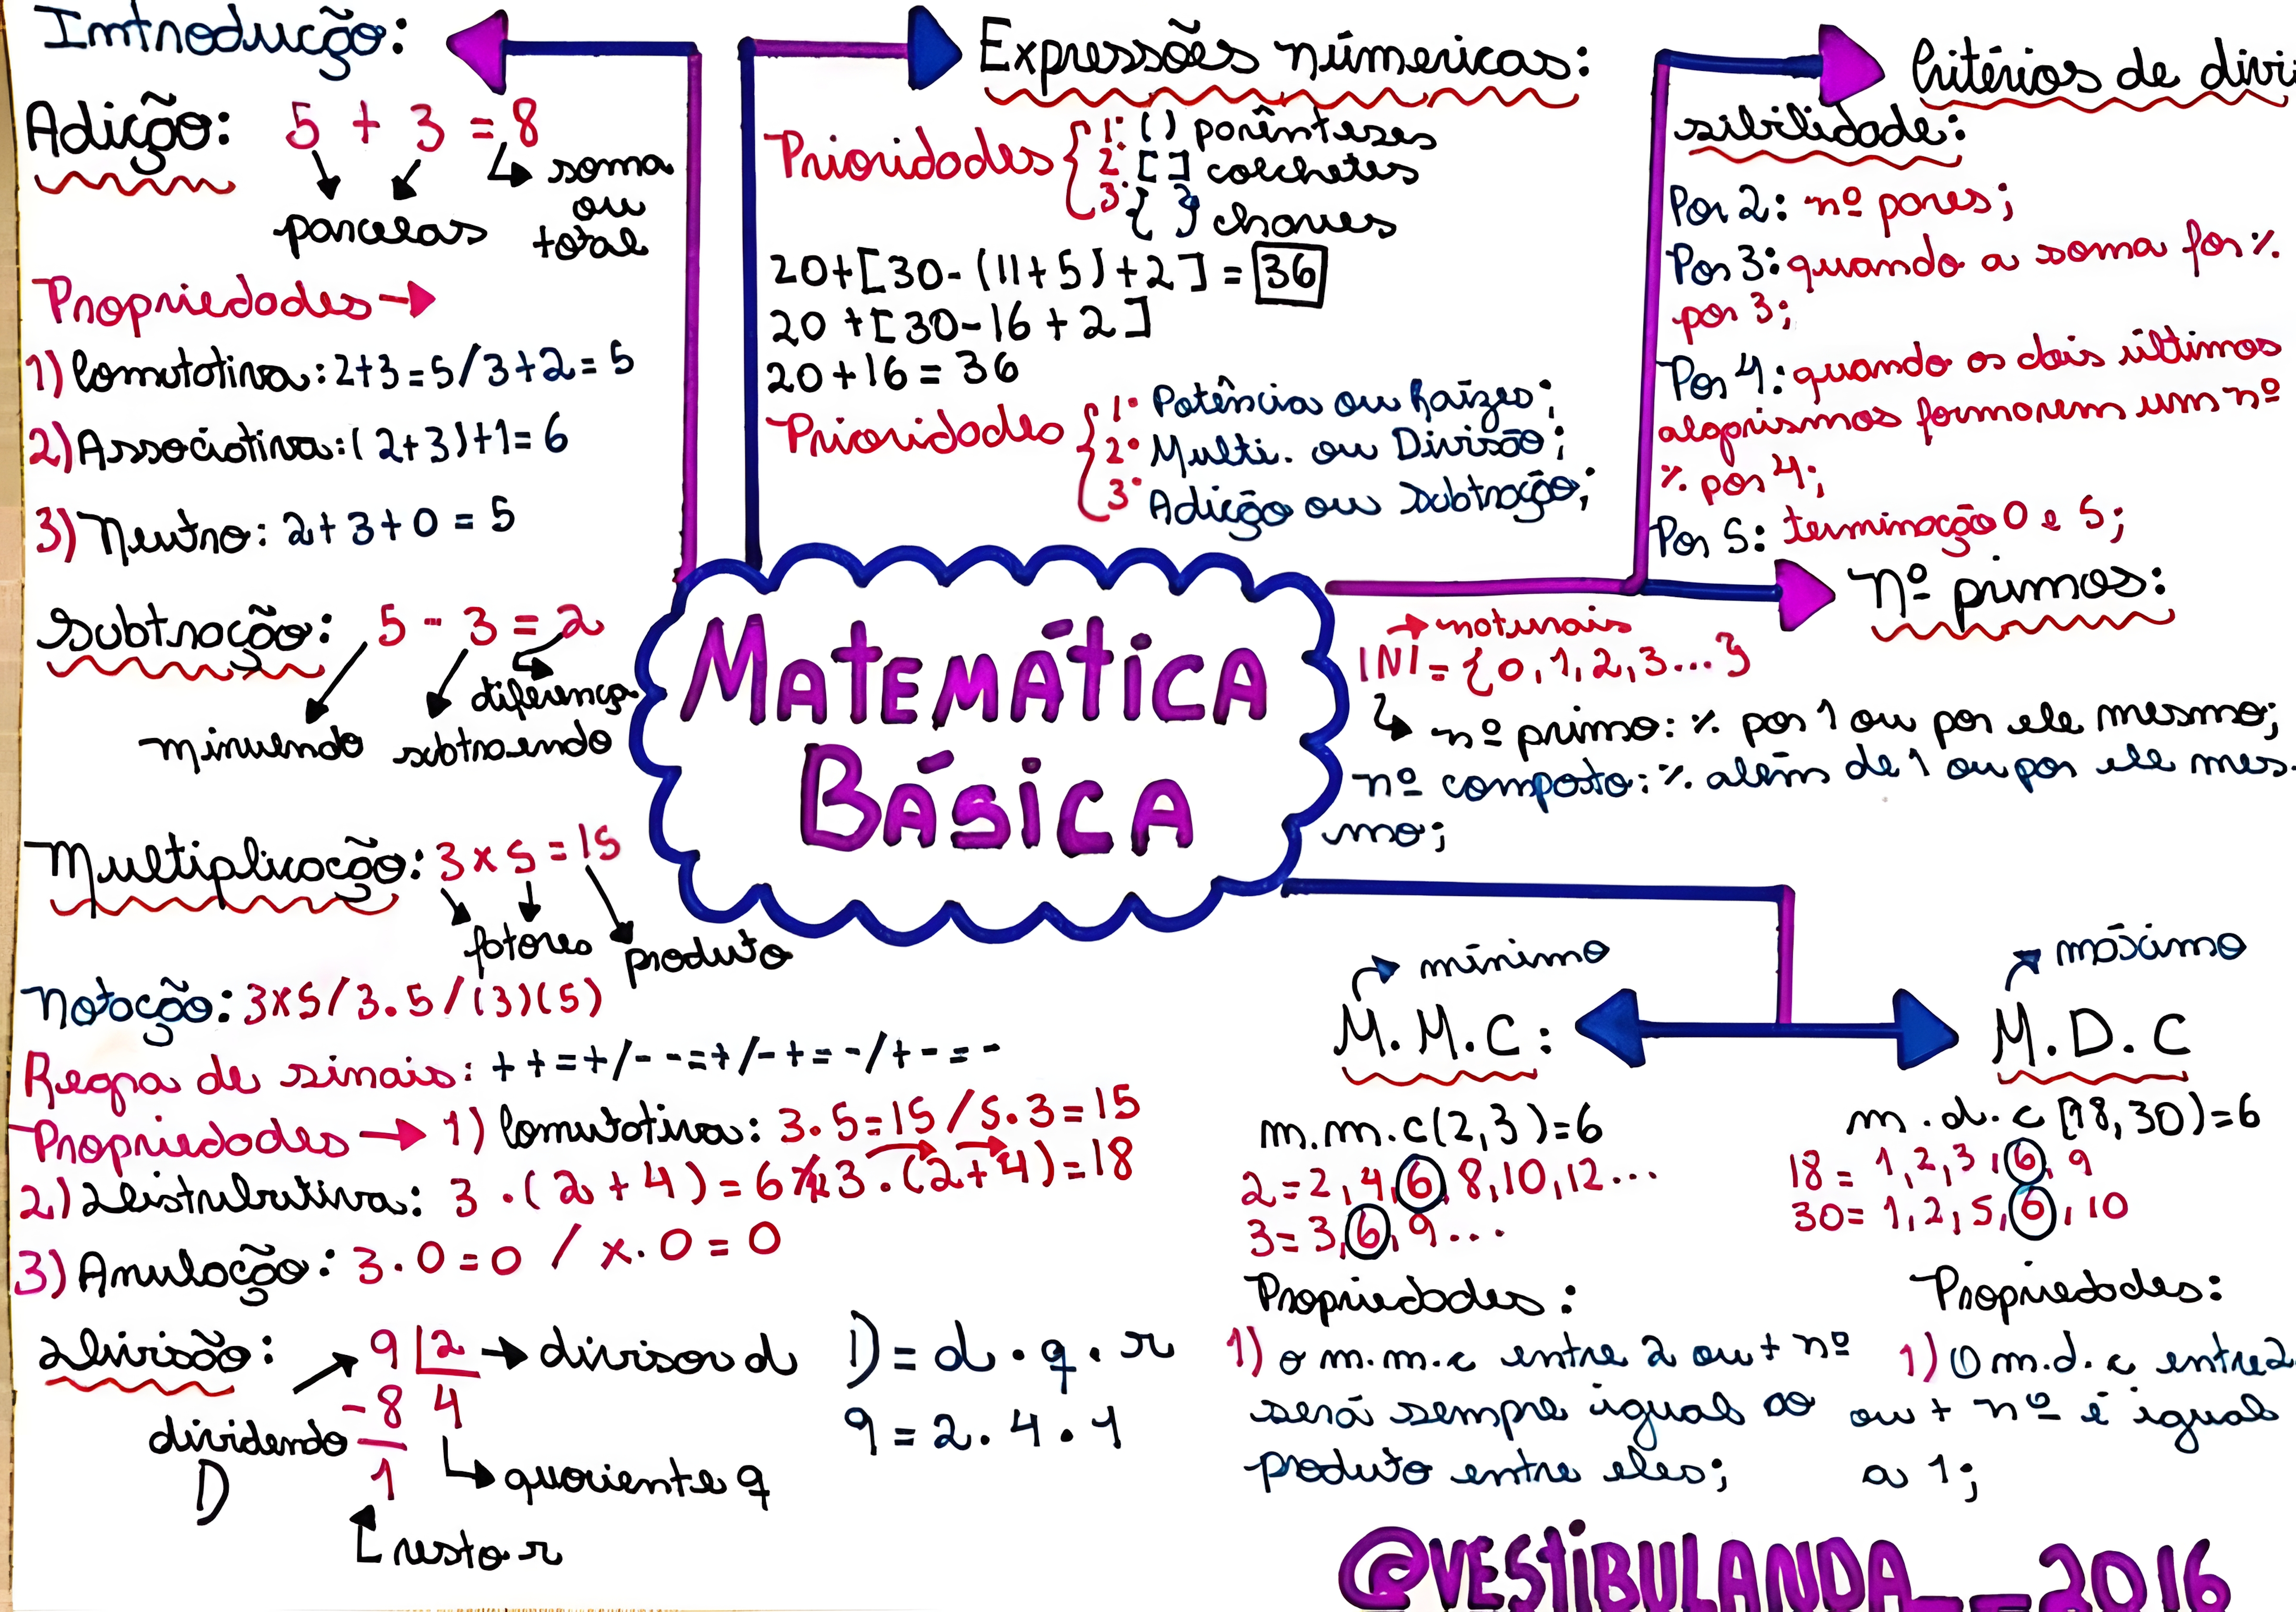 Introdução:
Adição: 5 + 3 = 8
soma
ou
total
parcelas
Propriedades →
1) Comutativa: 2+3=5/3+2=5
2) Associativa: (2+3)+1=6
3) Neutro: 2+3+0=5
Subtração: 5 - 3 = 2
diferença
minuendo subtraendo
Multiplicação: 3 x 5 = 15
fatores produto
Notação: 3x5/3.5/(3)(5)
Regra de sinais: ++=+/--=+/-+=-/+-=-
Propriedades → 1) Comutativa: 3.5=15/5.3=15
2) Distributiva: 3.(2+4)=6 3.(2+4)=18
3) Anulação: 3.0=0 / x.0=0
Divisão: 9 2 → divisor d
-8 4
dividendo
D
1
quociente q
resto r
D = d . q . r
9 = 2 . 4 . 1
Expressões númericas:
Prioridades { 1º () parênteses
2º [ ] colchetes
3º { } chaves
20+[30-(11+5)+2] = 36
20+[30-16+2]
20+16=36
Prioridades { 1º Potência ou Raízes;
2º Multi. ou Divisão;
3º Adição ou Subtração;
MATEMÁTICA
BÁSICA
Critérios de divi
sibilidade:
Por 2: nº pares;
Por 3: quando a soma for %
por 3;
Por 4: quando os dois últimos
algarismos formarem um nº
% por 4;
Por 5: terminação 0 e 5;
Nº primos:
→ naturais
|N| = {0,1,2,3...}
nº primo: % por 1 ou por ele mesmo;
nº composto: % além de 1 ou por ele mes-
mo;
mínimo
M.M.C:
m.m.c(2,3)=6
2=2,4,6,8,10,12...
3=3,6,9...
Propriedades:
1) O m.m.c entre 2 ou + nº
será sempre igual ao
produto entre eles;
máximo
M.D.C
m.d.c (18,30)=6
18= 1,2,3,6,9
30= 1,2,5,6,10
Propriedades:
1) O m.d.c entre 2
ou + nº é igual
a 1;
@VESTIBULANDA__2016